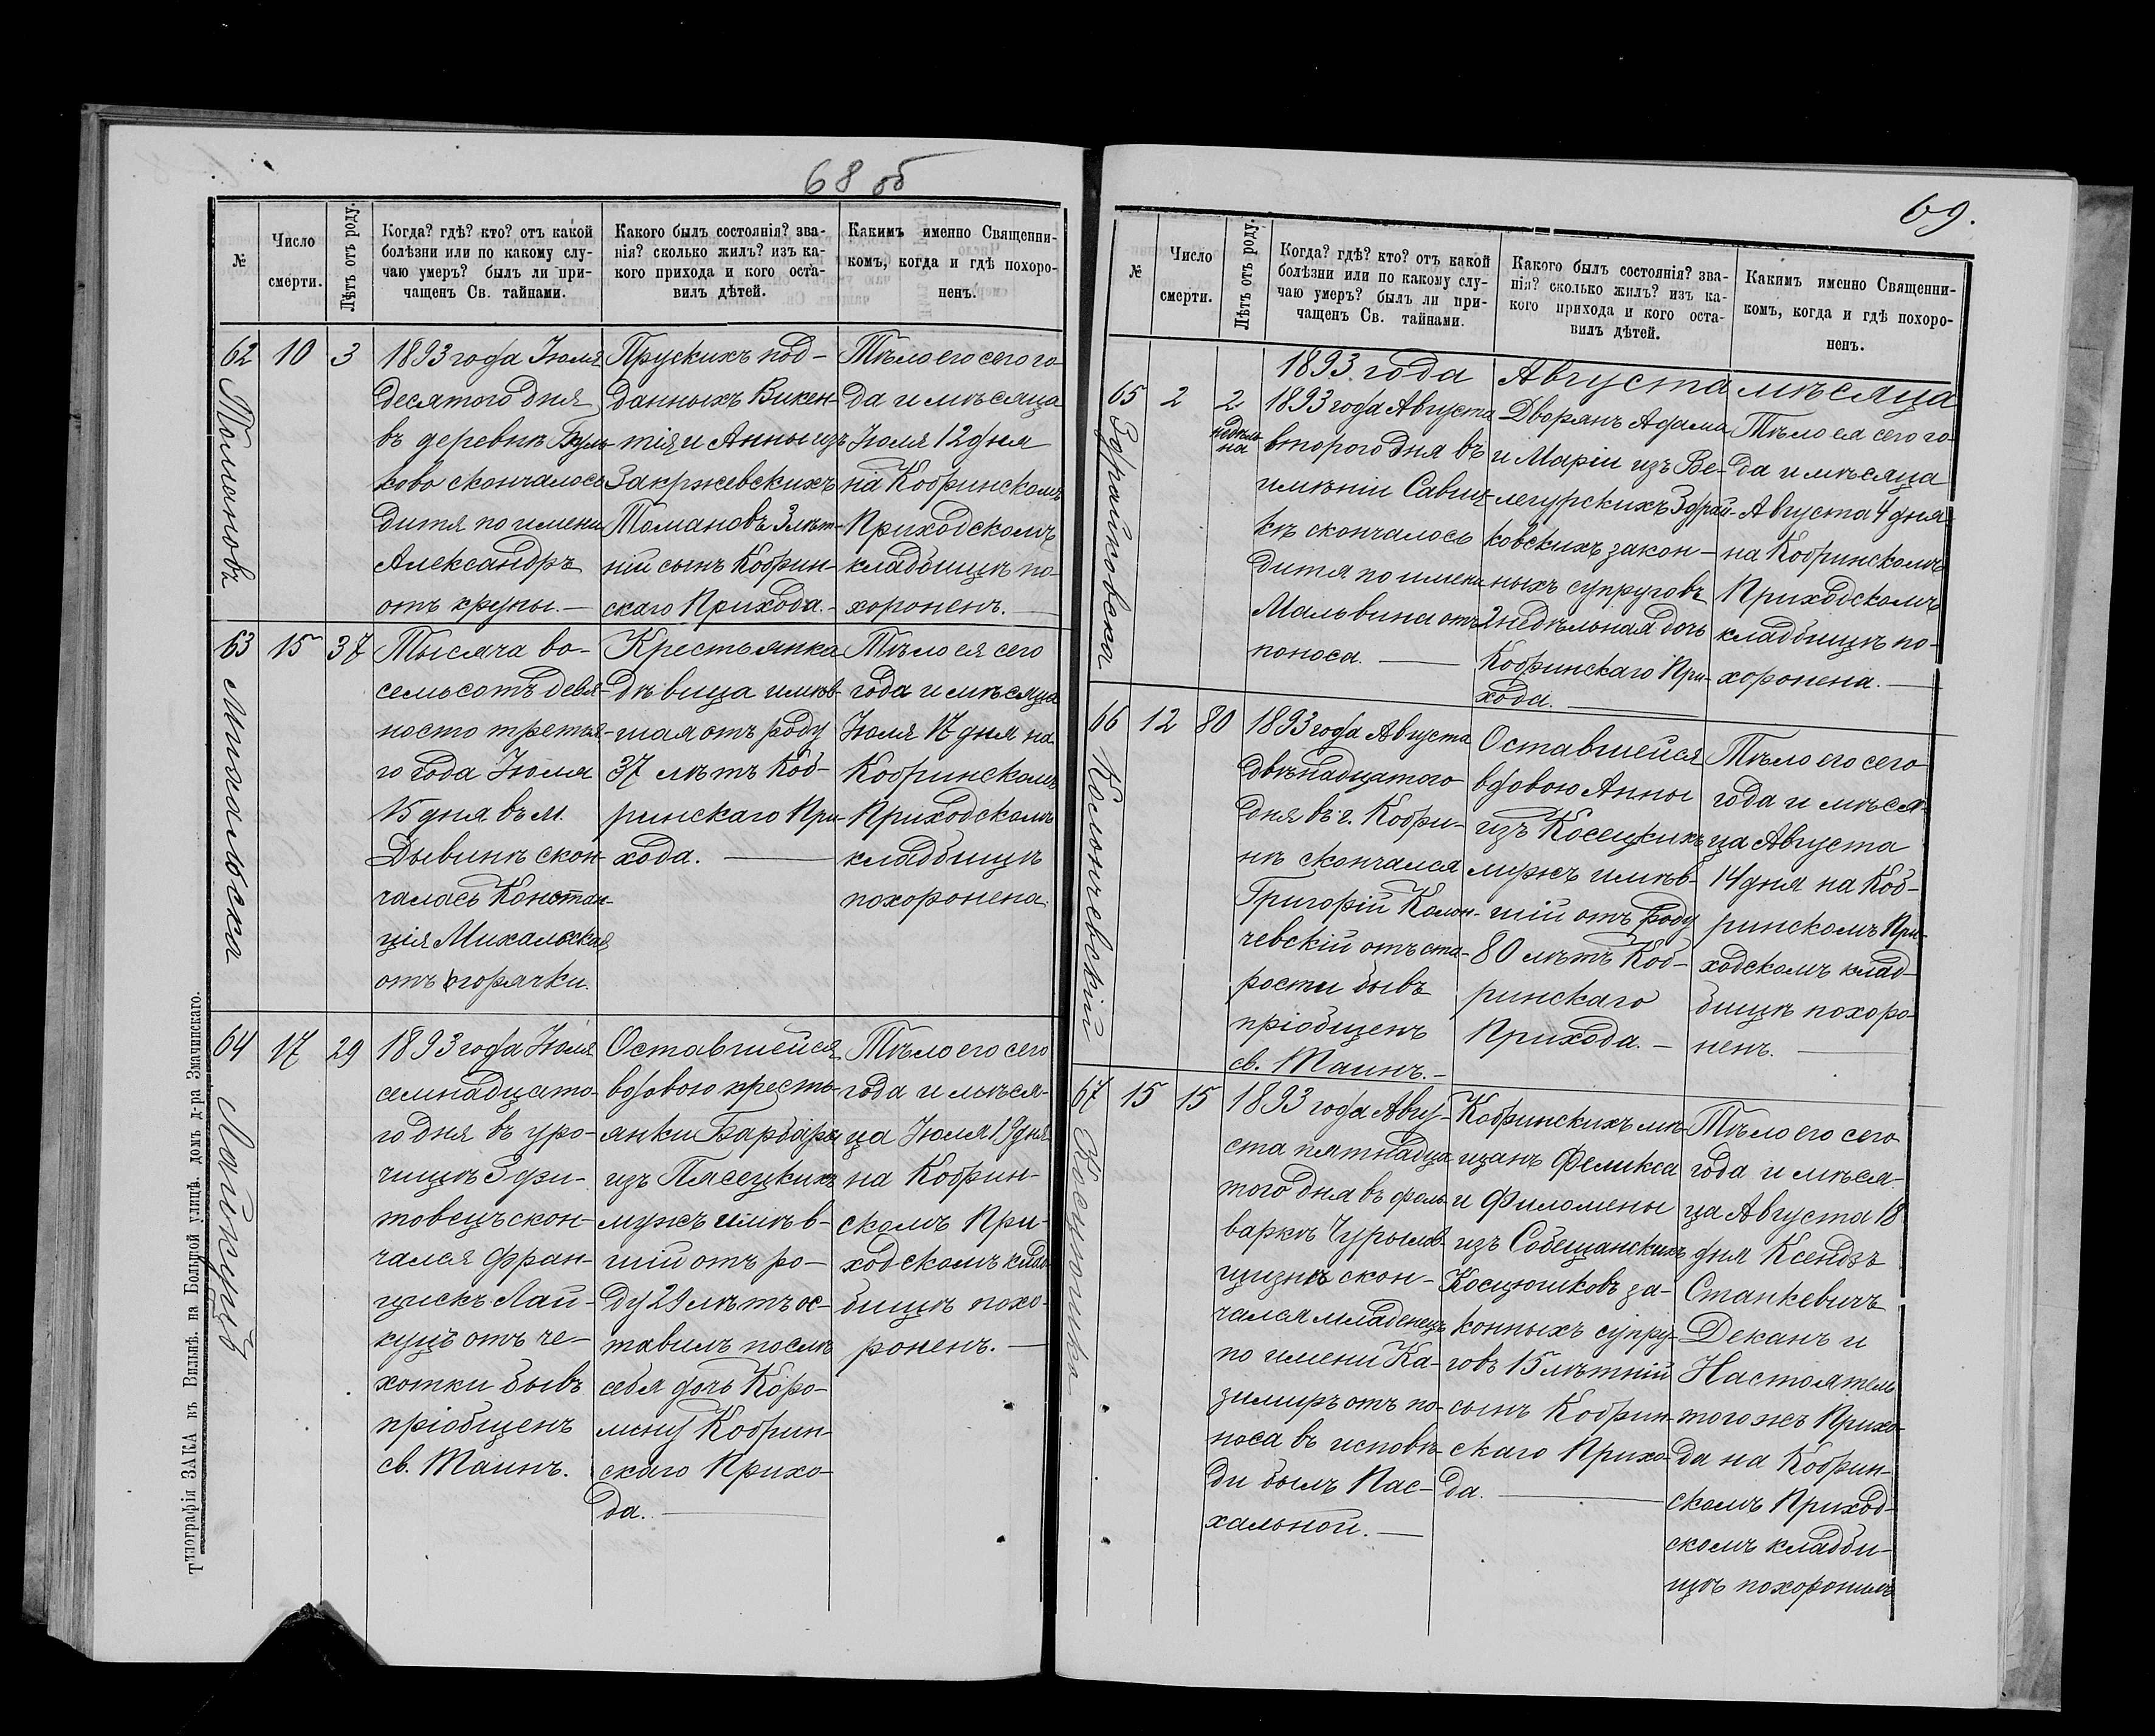 68 об
№
Число
смерти.
Лѣтъ отъ роду.
Когда? гдѣ? кто? отъ какой
болѣзни или по какому слу-
чаю умеръ? былъ ли при-
чащенъ Св. тайнами.
Какого былъ состоянія? зва-
нія? сколько жилъ? изъ ка-
кого прихода и кого оста-
вилъ дѣтей.
Какимъ именно Священни-
комъ, когда и гдѣ похоро-
ненъ.
62
Томановъ
10
3
1893 года Іюля
десятого дня
въ деревнѣ
ково скончалось
дитя по имени
Александръ
отъ крупы. —
Прускихъ под-
данныхъ Викен-
тія и Анны изъ
Закржевскихъ
Томановъ 3 лѣт-
ній сынъ Кобрин-
скаго Прихода. -
Тѣло его сего го-
да и мѣсяца
Іюля 12 дня
на Кобринскомъ
Приходскомъ
кладбищѣ по-
хороненъ. —
63
Михальска
15
37
Тысяча во-
семьсотъ девя-
носто третья-
го года Іюля
15 дня въ м.
Дывинѣ скон-
чалась Констан-
ція Михальская
отъ горячки.
Крестьянка
дѣвица имѣв-
шая отъ роду
37 лѣтъ Коб-
ринскаго При-
хода. —
Тѣло ея сего
года и мѣсяца
Іюля 17 дня на
Кобринскомъ
Приходскомъ
кладбищѣ
похоронена.
64
Лайкуцъ
17
29
1893 года Іюля
семнадцато-
го дня въ уро-
чищѣ
товецъ скон-
чался Фран-
цискъ Лай-
куцъ отъ че-
хотки бывъ
пріобщенъ
св. Таинъ.
Оставшейся
вдовою кресть-
янки Барбары
изъ Пясецкихъ
мужъ имѣв-
шій отъ ро-
ду 29 лѣтъ ос-
тавилъ послѣ
себя дочь Каро-
лину Кобрин-
скаго Прихо-
да. —
Тѣло его сего
года и мѣся-
ца Іюля 19 дня
на Кобрин-
скомъ При-
ходскомъ клад-
бищѣ похо-
роненъ. —
Типографія ЗАКА въ Вильнѣ. на Большой улицѣ. домъ д-ра Змачинскаго.
69.
№
Число
смерти.
Лѣтъ отъ роду.
Когда? гдѣ? кто? отъ какой
болѣзни или по какому слу-
чаю умеръ? былъ ли при-
чащенъ Св. тайнами.
Какого былъ состоянія? зва-
нія? сколько жилъ? изъ ка-
кого прихода и кого оста-
вилъ дѣтей.
Какимъ именно Священни-
комъ, когда и гдѣ похоро-
ненъ.
1893 года Августа мѣсяца
65
Здрайковска
2
2
недѣль-
на
1893 года Августа
второго дня въ
имѣніи Савиц-
кѣ скончалось
дитя по имени
Мальвина отъ
поноса. —
Дворянъ Адама
и Маріи изъ Ве-
легурскихъ Здрай-
ковскихъ закон-
ныхъ супруговъ
2 недѣльная дочь
Кобринскаго При-
хода. —
Тѣло ея сего го-
да и мѣсяца
Августа 4 дня
на Кобринскомъ
Приходскомъ
кладбищѣ по-
хоронена. —
66
Колончевскій
12
80
1893 года Августа
двѣнадцатого
дня въ г. Кобри-
нѣ скончался
Григорій Колон-
чевскій отъ ста-
рости бывъ
пріобщенъ
св. Таинъ. -
Оставшейся
вдовою Анны
изъ Косецкихъ
мужъ имѣв-
шій отъ роду
80 лѣтъ Коб-
ринскаго
Прихода. -
Тѣло его сего
года и мѣся-
ца Августа
14 дня на Коб-
ринскомъ При-
ходскомъ клад-
бищѣ похоро-
ненъ. —
67
Косцюшко
15
15
1893 года Авгу-
ста пятнадца
того дня въ фоль-
варкѣ Чурылов-
щизнѣ скон-
чался младенецъ
по имени Ка-
зимиръ отъ по-
носа въ исповѣ-
ди былъ Пас-
хальной. —
Кобринскихъ мѣ-
щанъ Феликса
и Филомены
изъ Собещанскихъ
Косцюшковъ за-
конныхъ супру-
говъ 15 лѣтній
сынъ Кобрин-
скаго Прихо-
да. —
Тѣло его сего
года и мѣся-
ца Августа 18
дня Ксендзъ
Станкевичъ
Деканъ и
Настоятель
того жъ Прихо-
да на Кобрин-
скомъ Приход-
скомъ кладби-
щѣ похоронилъ